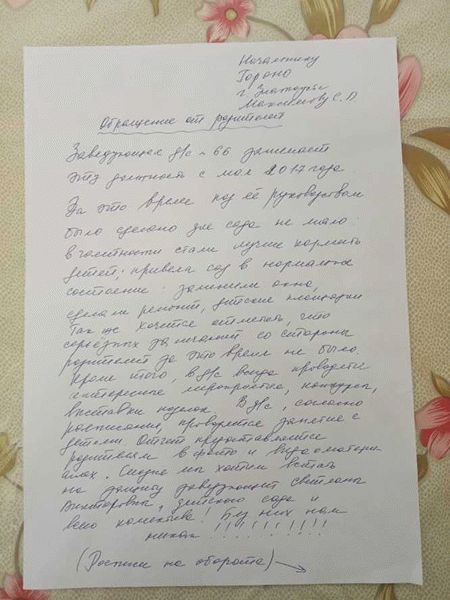 Начальнику
Гороно
г. Златоуст
Максимову С.П.
Обращение от родителей
Заведующая д/с № 66 занимает
эту должность с мая 2017 года.
За это время под её руководством
было сделано для сада не мало:
в частности стали лучше кормить
детей; привела сад в нормальное
состояние: заменили окна,
сделан ремонт, детские площадки
Так же хочется отметить, что
серьёзных со стороны
родителей за это время не было.
Кроме того, в д/с всегда проводятся
интересные мероприятия, конкурсы,
выставки В д/с, согласно
расписания, проводится занятие с
детьми. Отчет предоставляется
родителям в фото и видео матери-
алах. мы хотим встать
на защиту заведующей Светланы
Викторовны, детского сада и
всего колектива! Без них нам
никак !!!!!!!!!!
(Росписи на обороте)